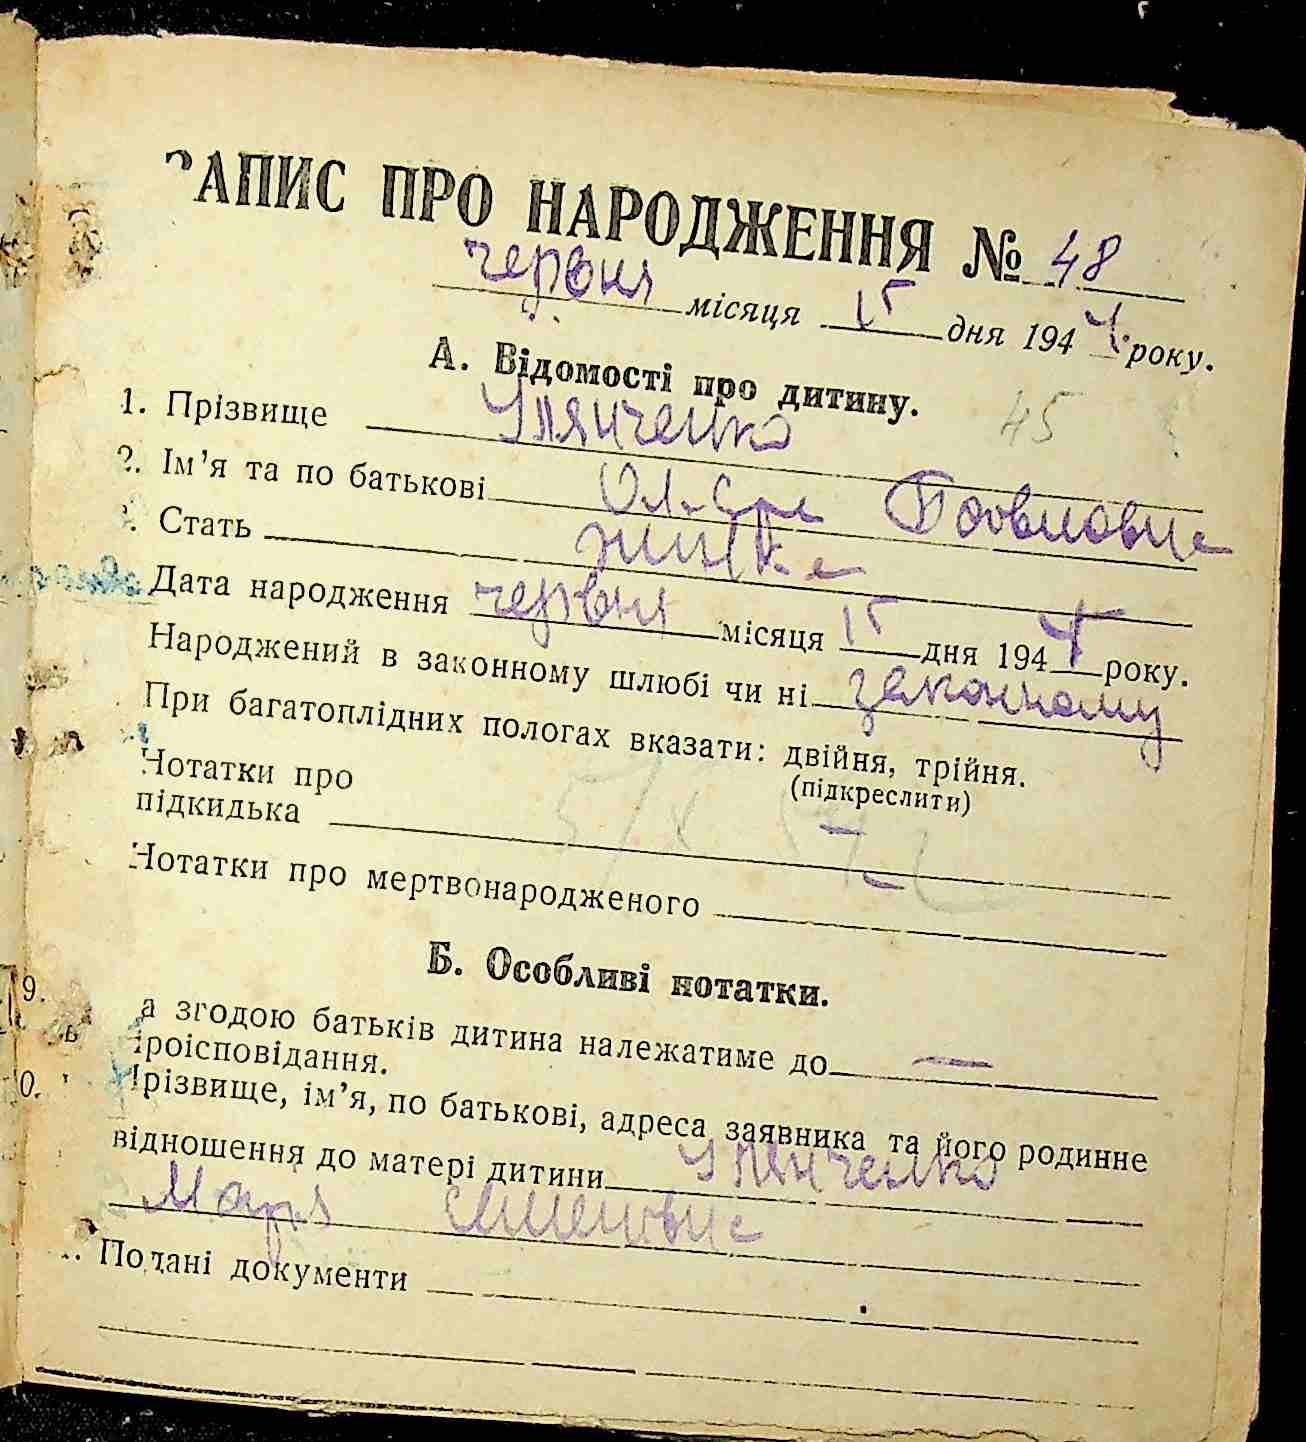 ЗАПИС ПРО НАРОДЖЕННЯ № 48
червня місяця 15 дня 194 року.
А. Відомості про дитину.
45
1. Прізвище Улянченко
2. Ім'я та по батькові
Стать жінка
Дата народження червня місяця 15 дня 194 року.
Народжений в законному шлюбі чи ні законному
При багатоплідних пологах вказати: двійня, трійня.
(підкреслити)
Нотатки про
підкидька —
Нотатки про мертвонародженого —
Б. Особливі нотатки.
9. а згодою батьків дитина належатиме до —
роісповідання.
0. Прізвище, ім'я, по батькові, адреса заявника та його родинне
відношення до матері дитини Улянченко
Марія Семеновна
Подані документи